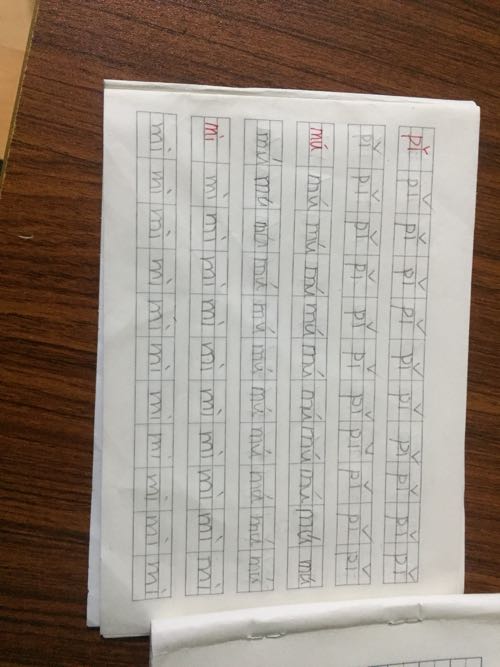 pǐ pǐ pǐ pǐ pǐ pǐ pǐ pǐ pǐ pǐ pǐ
pǐ pǐ pǐ pǐ pǐ pǐ pǐ pǐ pǐ pǐ pǐ
mú mú mú mú mú mú mú mú mú mú mú
mú mú mú mú mú mú mú mú mú mú mú
mì mì mì mì mì mì mì mì mì mì mì
mì mì mì mì mì mì mì mì mì mì mì